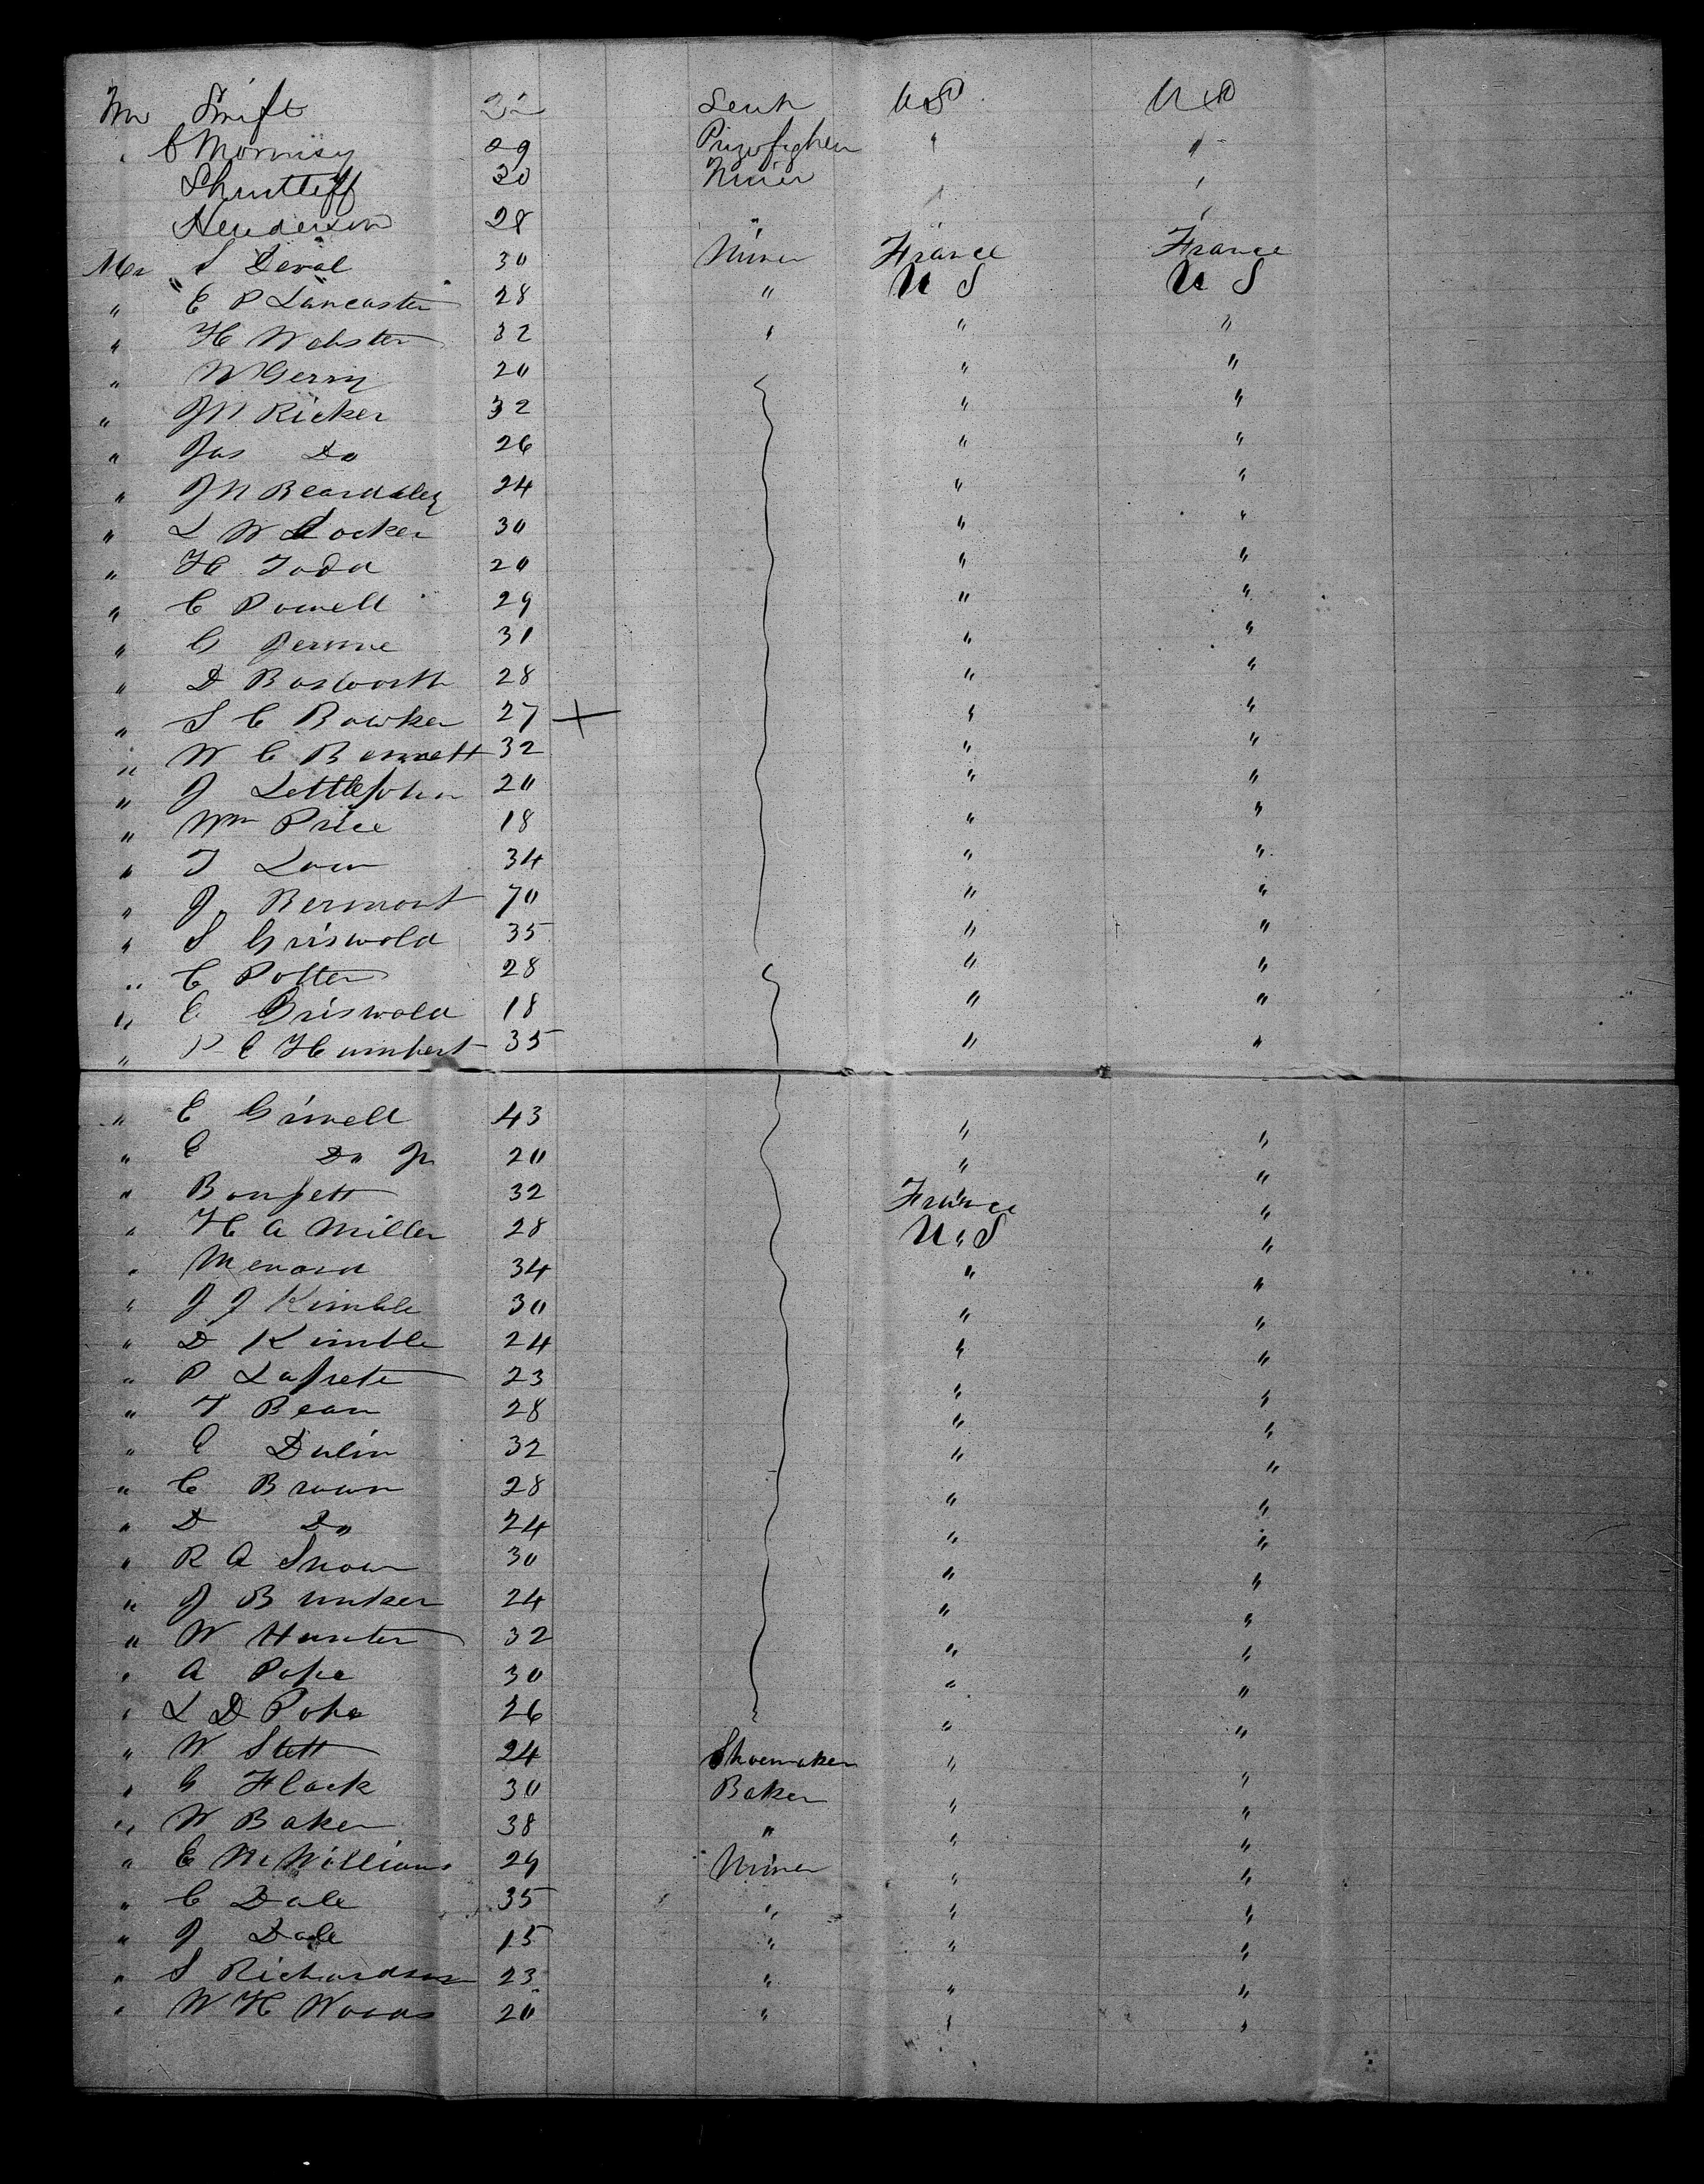 Mr Swift 32 U S U S
" C Morrisy 29 Prizefighter " "
Shurtleff 30 Miner " "
Henderson 28 " " "
Mr S Deval 30 Miner France France
" E P Lancaster 28 " U S U S
" H Webster 32 " " "
" W Gerry 20 " "
" J M Ricker 32 " "
" Jas Do 26 " "
" J N Beardsley 24 " "
" L W Locker 30 " "
" H Todd 20 " "
" C Powell 29 " "
" G Jerome 31 " "
" D Bosworth 28 " "
" S C Bowker 27 + " "
" W C Bennett 32 " "
" J Lettlejohn 20 " "
" Wm Price 18 " "
" T Low 34 " "
" J Bermont 70 " "
" S Griswold 35 " "
" C Potter 28 " "
" C Griswold 18 " "
" P E Humbert 35 " "
" E Grinell 43 " "
" E Do Jr 20 " "
" 32 France "
" H A Miller 28 U S "
" Menard 34 " "
" J J Kimble 30 " "
" D Kimble 24 " "
" P 23 " "
" T Bean 28 " "
" C Dulin 32 " "
" C Brown 28 " "
" D Do 24 " "
" R A Snow 30 " "
" J Bunker 24 " "
" W Hunter 32 " "
" A Pope 30 " "
" L D Pope 26 " "
" W Stett 24 Shoemaker " "
" G Flack 30 Baker " "
" W Baker 38 " " "
" E McWilliams 29 Miner " "
" C Dale 35 " " "
" J Dale 15 " " "
" S Richardson 23 " " "
" W H Woods 20 " " "